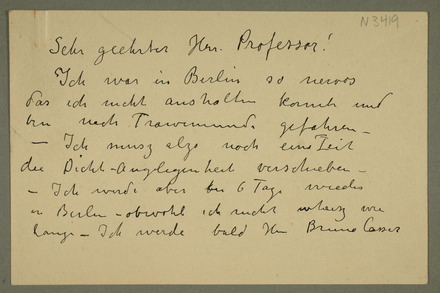 N3419
Sehr geehrter Herr Professor!
Ich war in Berlin so nervos
das ich nicht aushalten konnte und
bin nach Trawemunde gefahren –
– Ich musz alzo noch eine Zeit
die Dicht-Anglegenheit verschieben –
– Ich werde aber 6 Tage wieder
in Berlin – obwohl ich nicht wie
lange – Ich werde bald Hern Bruno Casser